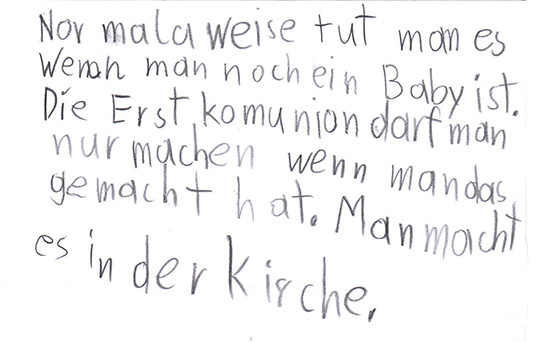 Normalaweise tut man es
Wenn man noch ein Baby ist.
Die Erstkomunion darf man
nur machen wenn man das
gemacht hat. Man macht
es in der kirche.